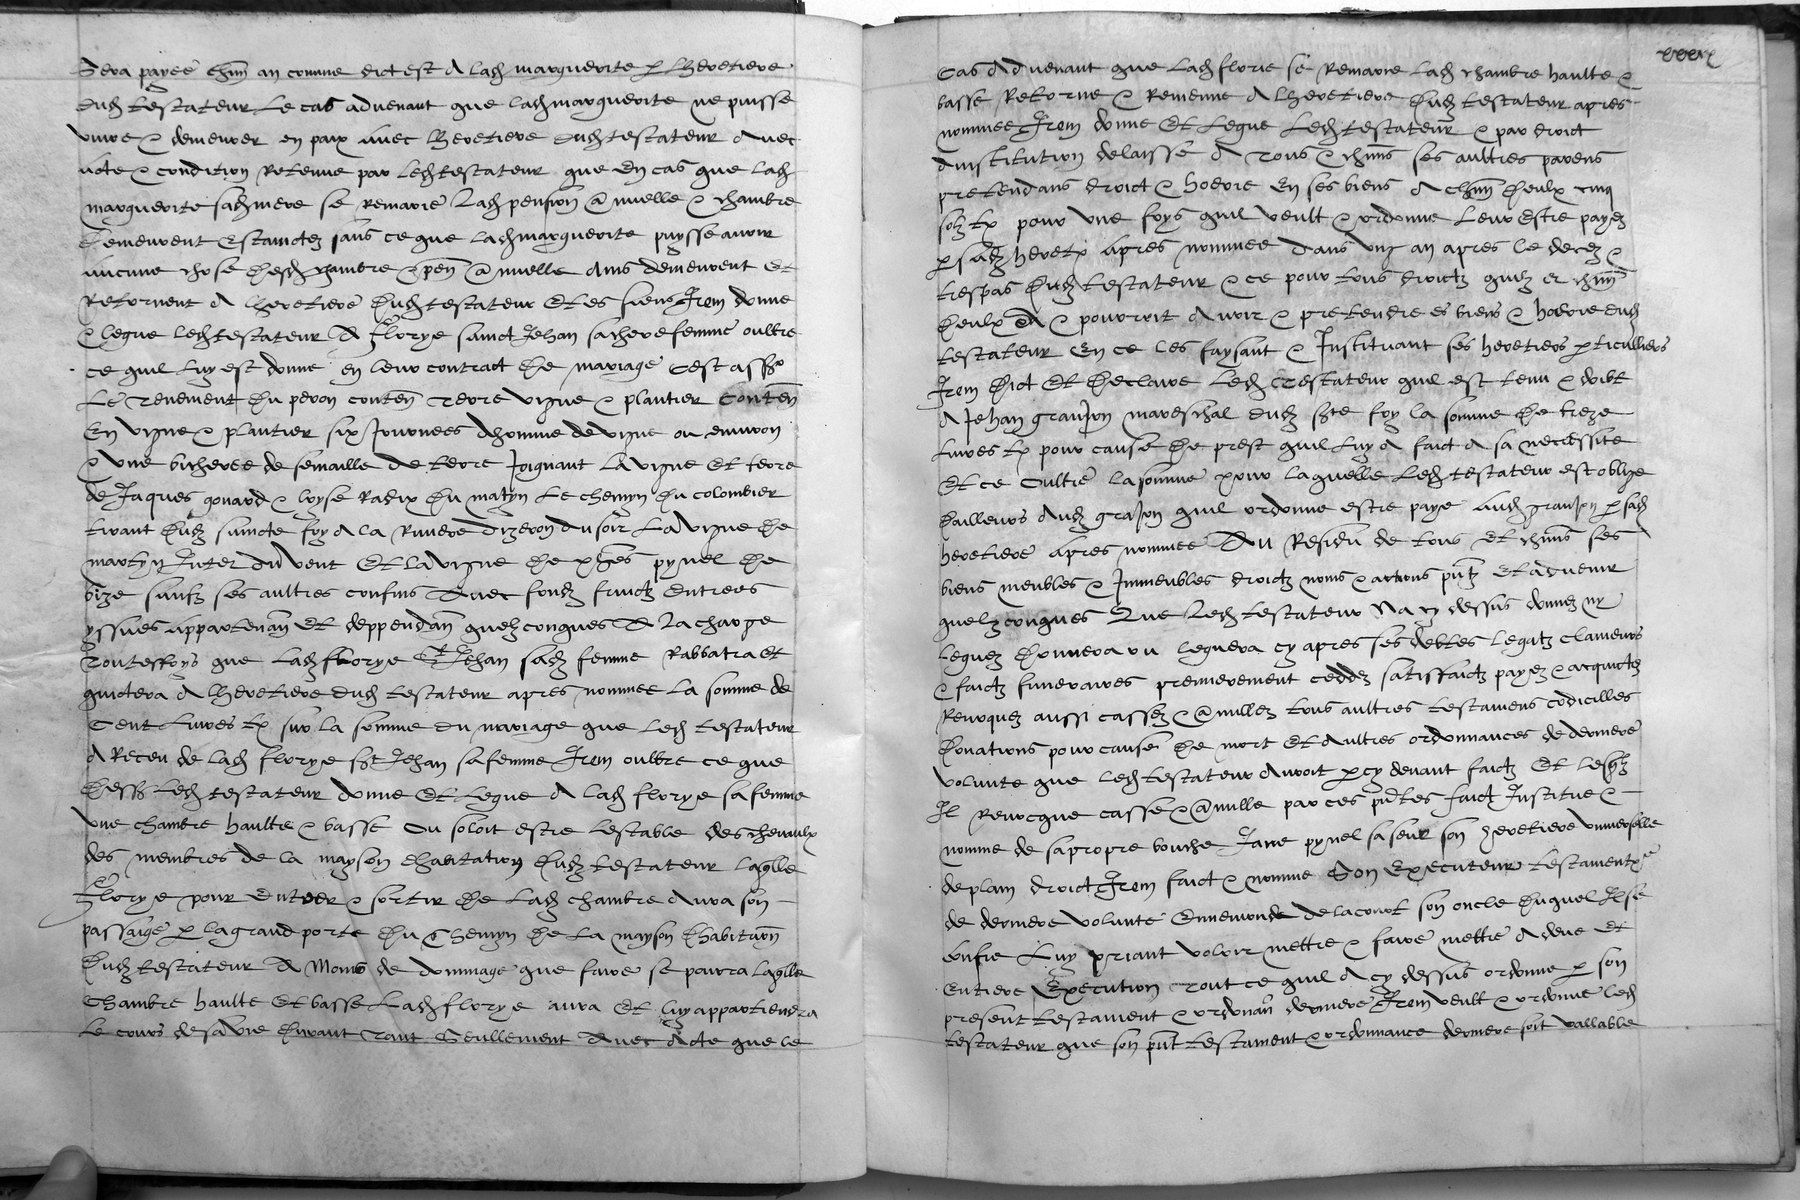 Sera payee chun an comme dict est A lad marguerite p lheretiere
dud testateur Le cas advenant que lad marguerite ne puisse
vivre & demeurer en paix avec lheretiere dud testateur Avec
acte & condition Retenue par led testateur que En cas que lad
marguerite sad mere se Remarie Lad pension @nuelle & chambre
demeurent Estainctez sans ce que lad marguerite puysse avoir
Aucune chose desd chambre & pen @nuelle Ains demeurent Et
Retornent A lheretiere dud testateur Et es siens Item donne
& legue led testateur A Florye sainct Jehan sa chere femme oultre
ce quil luy est donne en leur contract de mariage Cest ass
Le tenement du peron conten terre vigne & plantier Conten
En vigne & plantier six Journees dhomme de vigne ou environ
& Une bicheree de semaille de terre Joignant La vigne Et terre
de Jaques gonard & loyse Radix du matyn Le chemyn du colombier
tirant dud saincte foy A la Riviere dizeron du soir La vigne de
martyn Inter du vent Et la vigne de pynel de
bize saufz ses aultres confins Avec fondz fruictz Entrees
yssues appartenan Et deppendan quelzconques A La charge
Toutesfoys que Lad florye St Jehan sad femme Rabbatra Et
quictera A lheretiere dud testateur apres nommee La somme de
Cent Livres tz sur la somme du mariage que led testateur
A Receu de lad florye St Jehan sa femme Item oultre ce que
dess led testateur donne Et legue A lad florye sa femme
Une chambre haulte & basse Ou soloit estre lestable des chevaulx
des membres de la mayson dhabitation dud testateur Laqlle
Florye pour Entrer & sortir de Lad chambre Aura son
passaige p la grand porte du Chemyn de La mayson dhabitaon
dud testateur A Moins de dommage que faire se pourra Laqlle
Chambre haulte Et basse Lad florye aura Et luy appartiendra
Le cours de sa Vie durant Tant Seullement Avec Acte que Le
Cas Advenant que Lad florie se Remarie Lad chambre haulte &
basse Retorne & Revienne A lheretiere dud testateur apres
nommee Item donne Et Legue Led testateur & par droict
dinstitution delaisse A Tous & chuns ses aultres parens
pretendans droict & hoerie En ses biens A chun deulx cinq
solz tz pour une foys quil veult & ordonne Leur Estre payez
p sad heretie apres nommee Dans Ung an apres Le decez &
trespas dud testateur & ce pour tous droictz quilz et chun
deulx & pourroit Avoir & pretendre es biens & hoerie dud
testateur En ce Les faysant & Instituant ses heretiers pticulliers
Item Dict Et Declaire Led testateur quil est tenu & doibt
A Jehan granjon mareschal dud Ste foy la somme de treze
Livres tz pour cause de prest quil Luy A faict A sa necessite
Et ce Oultre la somme pour laquelle Led testateur est oblige
dailleurs Aud granjon quil ordonne estre paye Aud granjon p sad
heretiere apres nommee Au Residu de tous Et chuns ses
biens meubles & Immeubles droictz noms & actions pntz Et advenir
quelzconques Que Led testateur Na cy dessus donnez ny
Leguez Donnera ou Leguera cy apres ses debtes Legatz clameurs
& faictz funeraires premierement ceddez satisfaictz payez & acquictez
Revoquez aussi cassez & @nullez tous aultres testamens codicilles
Donations pour cause de mort Et Aultres ordonnances de derniere
volunte que led testateur Auroit p cy devant faictz Et lesqlz
Il Revocque casse & @nulle par ces pntes faict Institue &
nomme de sa propre bouche Jane pynel sa seur son heretiere universelle
de plain droict Item faict & nomme Son Executeur testamentre
de derniere Volunte Ennemonde de lacourt son oncle duquel Il se
Confie Luy priant voloir mettre & faire mettre A deue Et
Entiere Execution Tout ce quil A cy dessus ordonne p son
present testament & ordonan derniere Item veult & ordonne led
testateur que son pnt testament & ordonnance derniere soit vallable